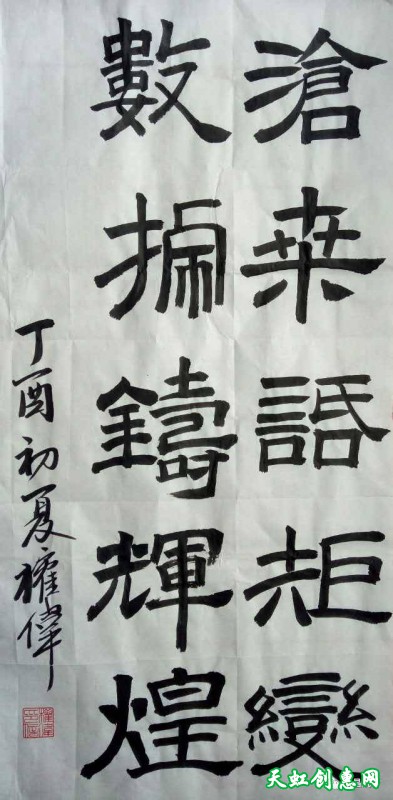 滄桒話矩變
數鑄輝煌
丁酉初夏權偉
天虹创意网